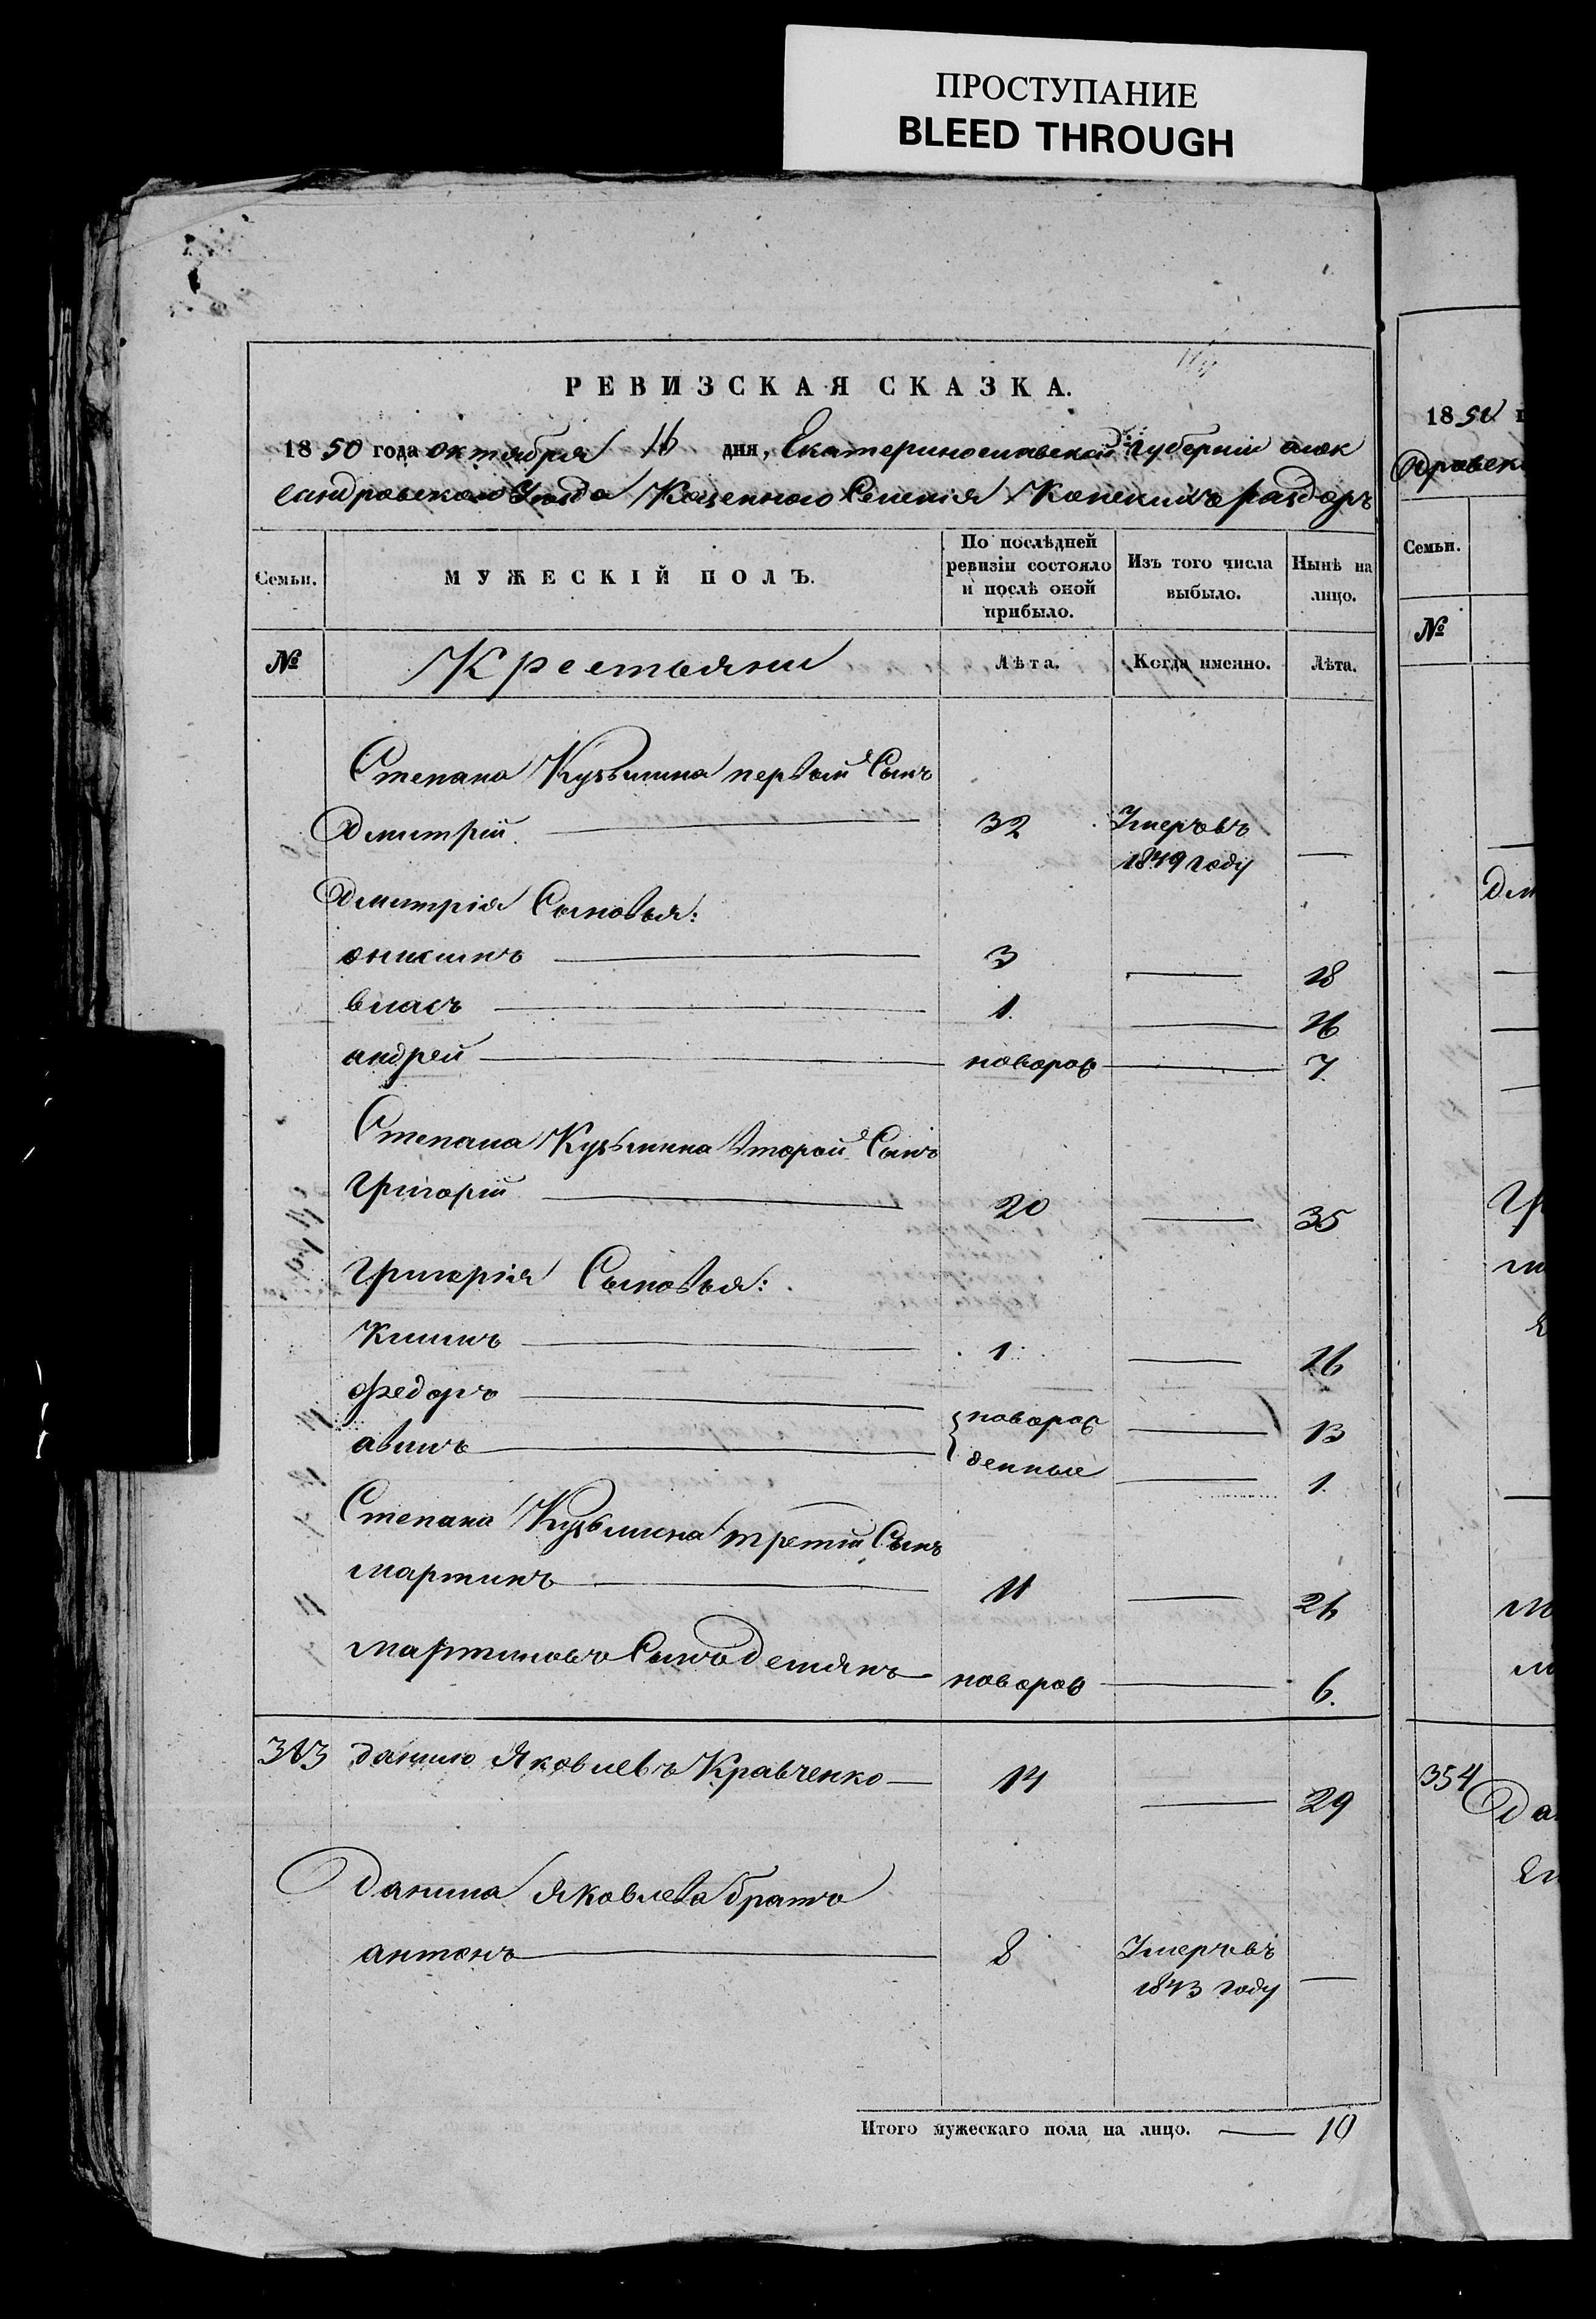 ПРОСТУПАНИЕ
BLEED THROUGH
РЕВИЗСКАЯ СКАЗКА.
1850 года октября 16 дня, Екатеринославской губерніи алек
сандровского Уезда Казенного Селенія Конскихъ раздоръ
Семьи.
МУЖЕСКІЙ ПОЛЪ.
По послѣдней
ревизіи состояло
и послѣ оной
прибыло.
Изъ того числа
выбыло.
Нынѣ на
лицо.
№ Крестьяни Лѣта. Когда именно. Лѣта.
Степана Кузьмина первый Сынъ
Дмитрій 32 Умеръ въ
1849 году —
Дмитрія Сыновья:
3 — 18
власъ 1. — 16
андрей новорож — 7.
Степана Кузьмина второй Сынъ
Григорій 20 — 35
Григорія Сыновья:
Климъ 1 — 16
Федоръ новорож — 13
денные — 1.
Степана Кузьмина третій Сынъ
мартинъ 11 — 26
мартиновъ Сынъ Демянъ новорож — 6.
данило Яковлевъ Кравченко — 14 — 29
Данила Яковлева братъ
антонъ 8 Умеръ въ
1843 году —
Итого мужескаго пола на лицо. — 10
1850 г
Дровск
Семьи.
№
Дм
Гр
354
Да